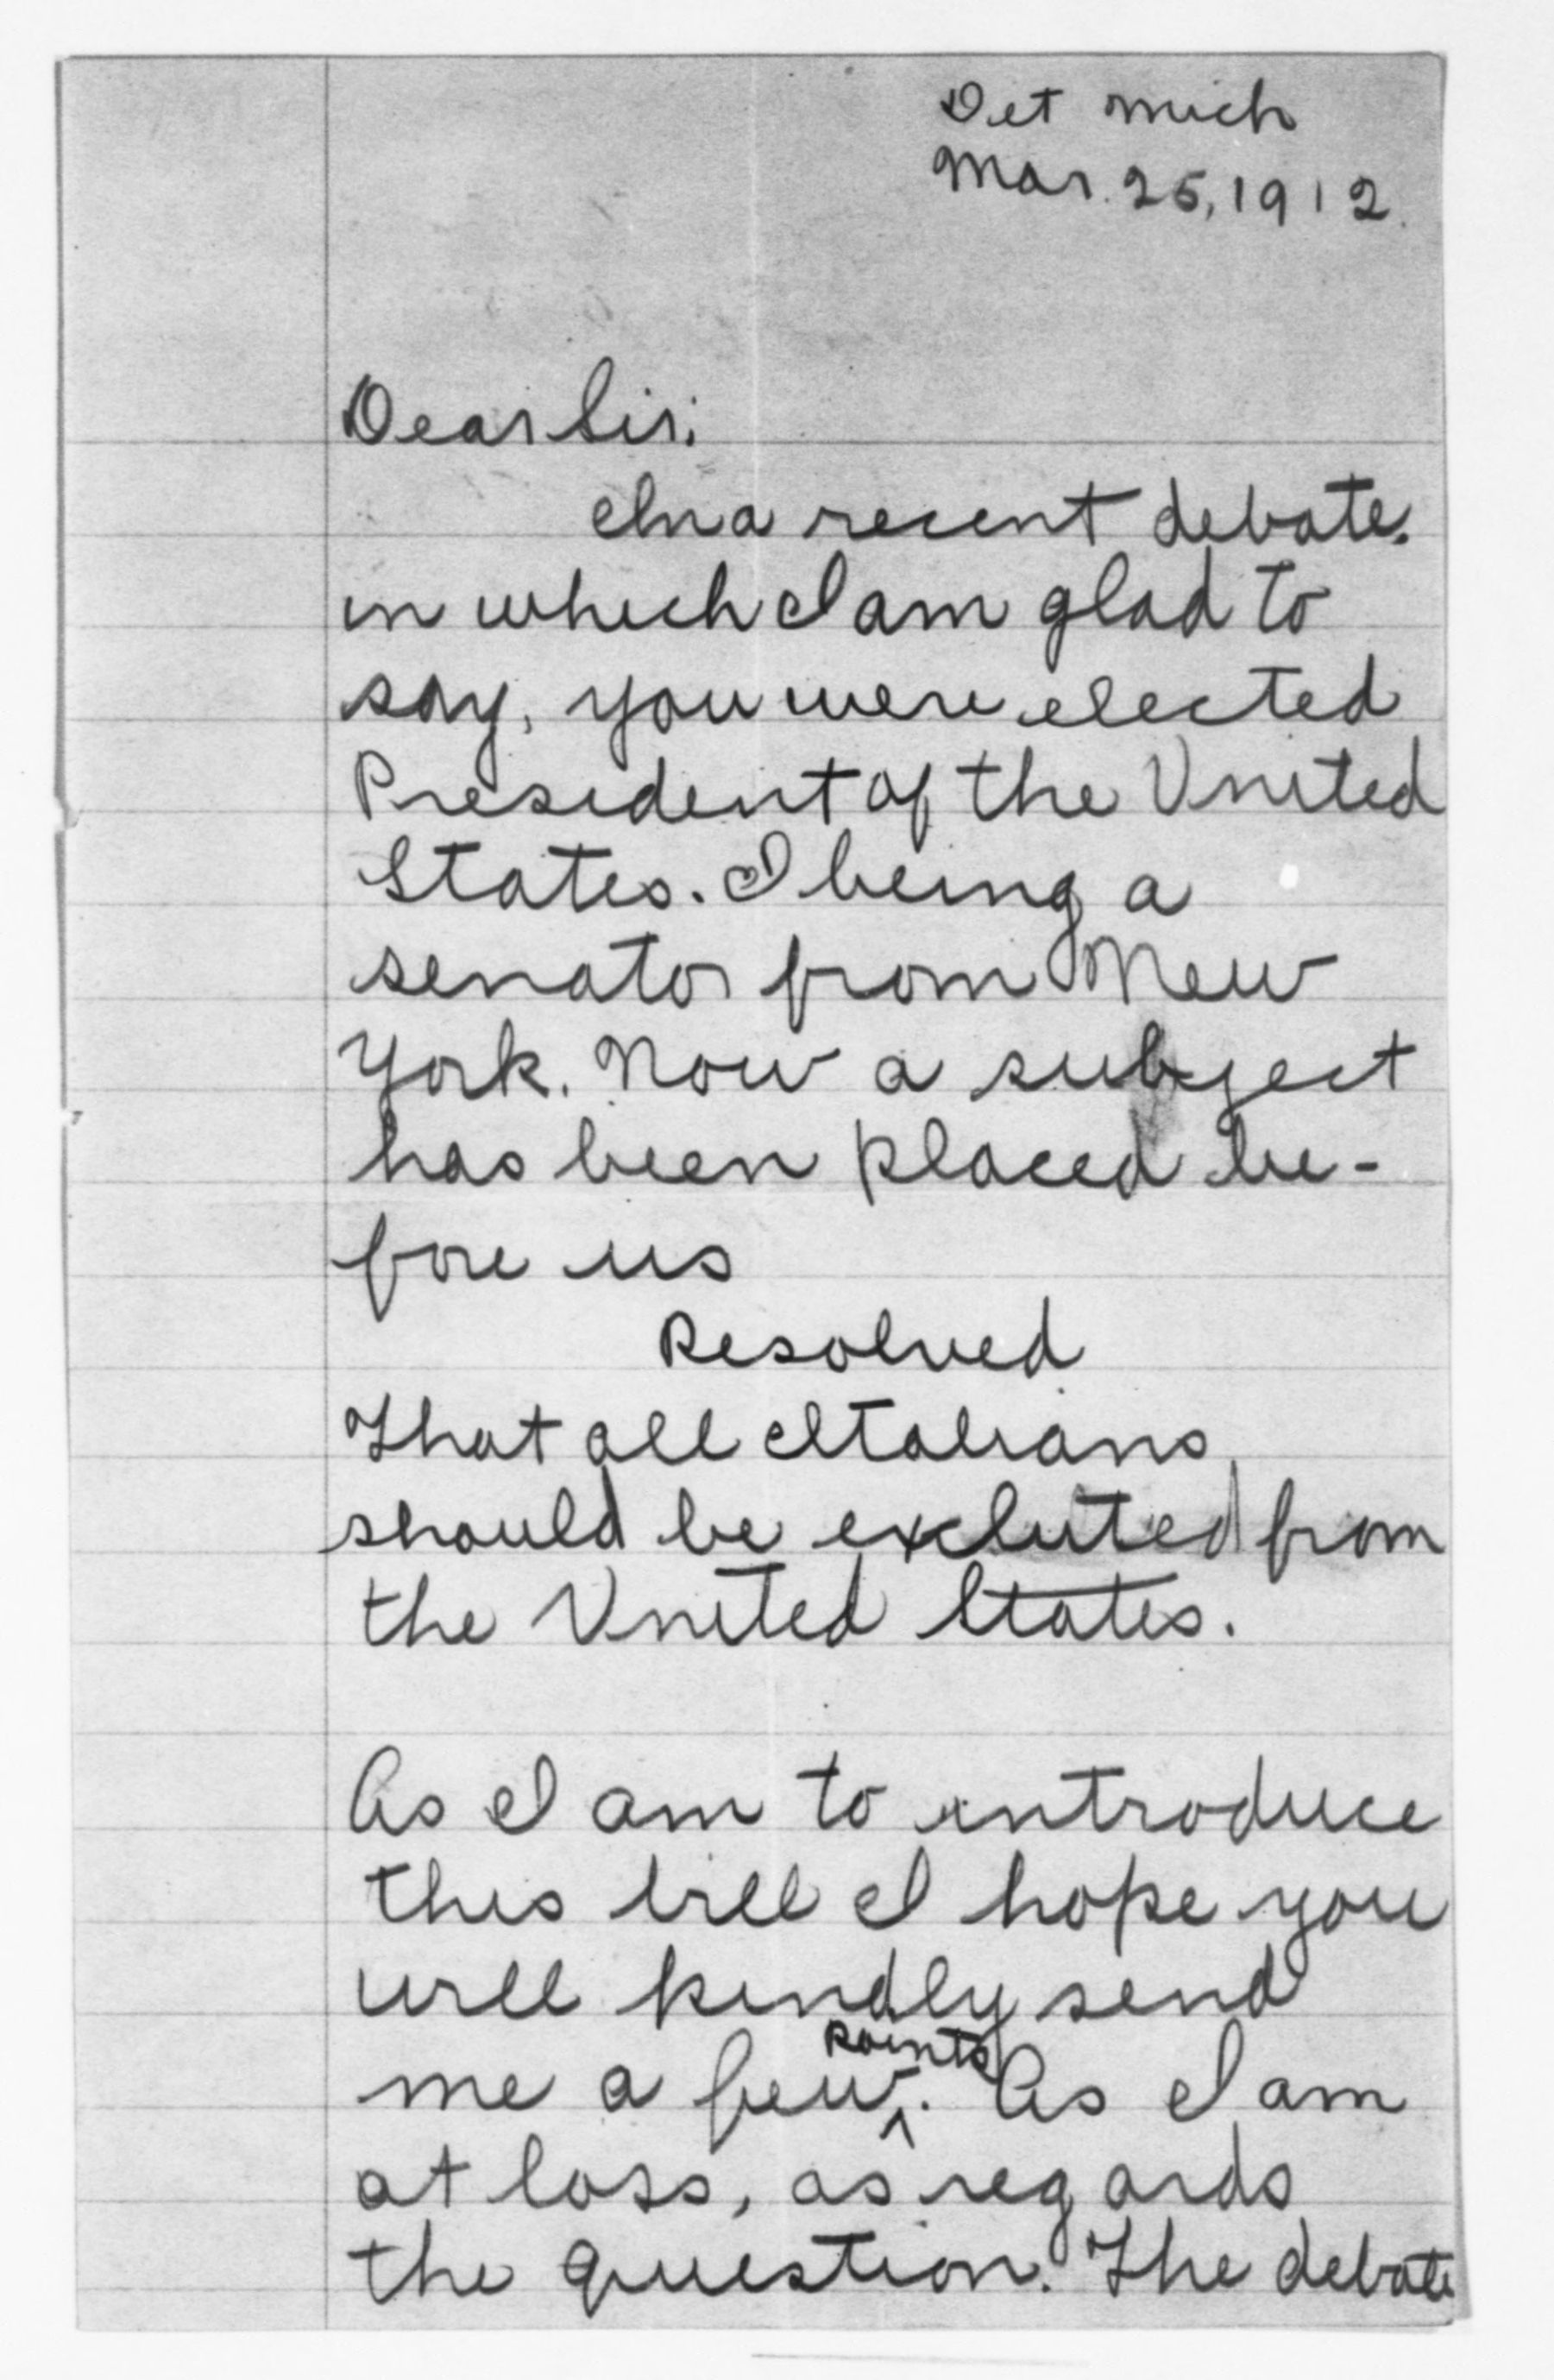 Det Mich
Mar. 25, 1912.
Dear Sir:
In a recent debate.
in which I am glad to
say, you were elected
President of the United
States. I being a
senator from New
York. Now a subject
has been placed be-
fore us
Resolved
That all Italians
should be excluted from
the United States.
As I am to introduce
this bill I hope you
will kindly send
me a few points. As I am
at loss, as regards
the question. The debate